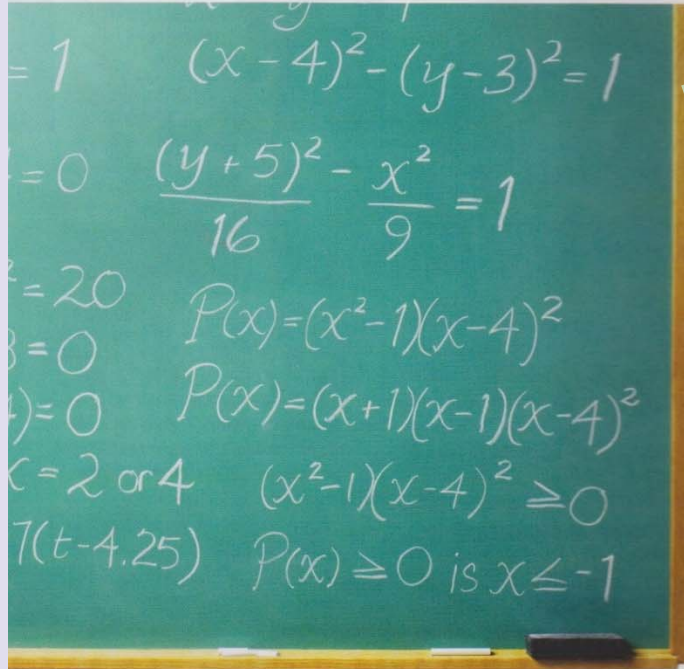 = 1
= 0
= 20
= 0
)= 0
x = 2 or 4
7(t-4.25)
(x-4)²-(y-3)²=1
(y+5)²/16 - x²/9 = 1
P(x)=(x²-1)(x-4)²
P(x)=(x+1)(x-1)(x-4)²
(x²-1)(x-4)² ≥0
P(x) ≥ 0 is x ≤ -1